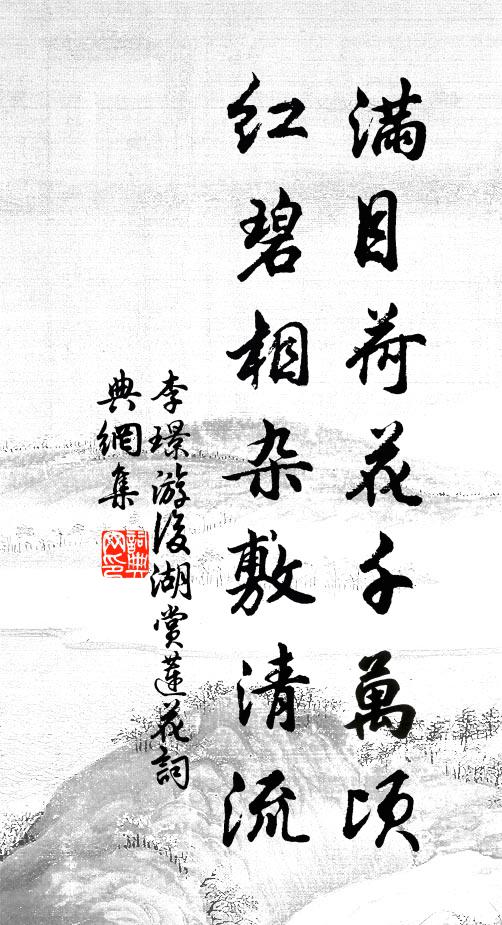 滿目荷花千萬頃
紅碧相杂敷清流
李璟游後湖賞蓮花詞
典網集
詞典
网印